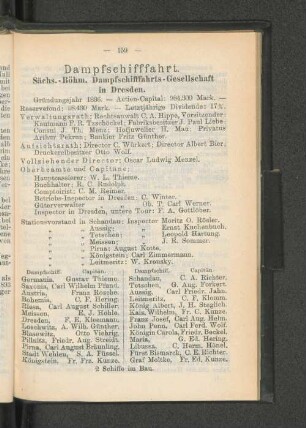 — 159 —
Dampfschifffahrt.
Sächs.-Böhm. Dampfschifffahrts-Gesellschaft
in Dresden.
Gründungsjahr 1836. — Actien-Capital: Mark. —
Reservefond: Mark. — Letztjährige Dividende:
Verwaltungsrath: Rechtsanwalt C. A. Hippe, Vorsitzender.
Kaufmann F. R. Teschoche, Fabrikbesitzer J. Paul Liebe.
Consul J. Th. Menz. Hofjuwelier H. Mau. Privatus
Arthur Pekrun. Rentier Fritz Günther.
Aufsichtsrath: Director C. Würkert. Director Albert Bier.
Druckereibesitzer Otto Wolf.
Vollziehender Director: Oscar Ludwig Menzel.
Oberbeamte und Capitaine:
Hauptcassierer: W. L. Thieme.
Buchhalter: R. C. Rudolph.
Comptoirist: C. M. Reimer.
Betriebs-Inspector in Dresden: C. Winter.
Güterverwalter „ „ Ob. T. Carl Werner.
Inspector in Dresden, untere Tour: F. A. Gottlöber.
Stationsvorstand in Schandau: Inspector Moritz O. Rösler.
„ „ Aussig: „ Ernst Kuchenbuch.
„ „ Tetschen: „ Leopold Hartung.
„ „ Meissen: „ J. E. Sommer.
„ „ Pirna: August Kotte.
„ „ Königstein: Carl Zimmermann.
„ „ Leitmeritz: W. Kronsky.
Dampfschiff. Capitän. Dampfschiff. Capitän.
Germania, Gustav Thieme. Schandau, C. A. Richter.
Saxonia, Carl Wilhelm Pfand. Tetschen, G. Aug. Forkert.
Austria, Franz Rosche. Aussig, Carl Friedr. Jahn.
Bohemia, C. F. Hering. Leitmeritz, C. F. Klemm.
Riesa, Carl August Schiller. König Albert, J. H. Steglich.
Meissen, E. J. Hühle. Kais. Wilhelm, Fr. C. Kunze.
Dresden, F. E. Kleemann. Franz Josef, Carl Aug. Helm.
Loschwitz, A. Wilh. Günther. John Penn, Carl Ferd. Wolf.
Blasewitz, Otto Viehrig. Königin Carola, Friedr. Beckel.
Pillnitz, Friedr. Aug. Strohbach. Maria, G. Ed. Hering.
Pirna, Carl August Bräunling. Libussa, C. Herm. Hänel.
Stadt Wehlen, S. A. Füssel. Fürst Bismarck, C. E. Richter.
Königstein, Fr. M. Kunze. Graf Moltke, Fr. Ed. Kunze.
2 Schiffe im Bau.